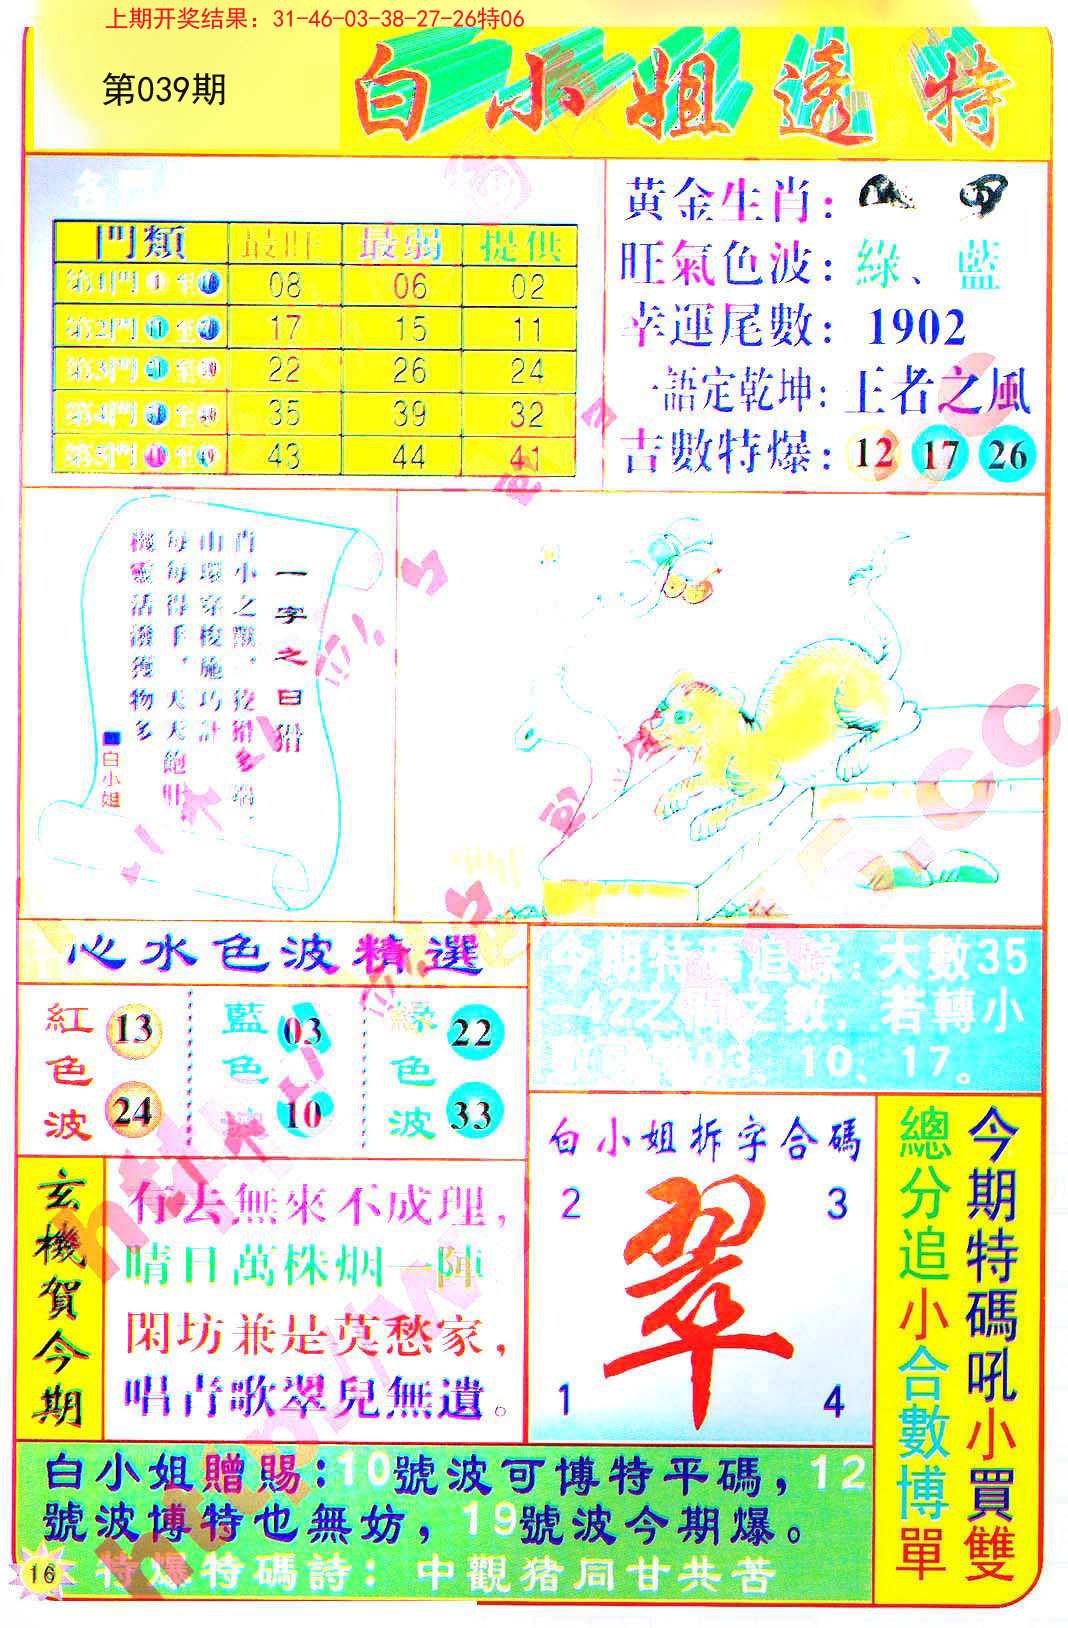 上期开奖结果：31-46-03-38-27-26特06
第039期
白小姐透特
門類 最旺 最弱 提供
第1門 1至10 08 06 02
第2門 11至20 17 15 11
第3門 21至30 22 26 24
第4門 31至40 35 39 32
第5門 41至49 43 44 41
黄金生肖：
旺氣色波：綠、藍
幸運尾數：1902
一語定乾坤：王者之風
吉數特爆：12 17 26
一字之曰猾
肖小之獸，狡猾多端。
山環穿梭施巧計
每每得手，天天飽肚
機靈活潑獲物多
白小姐
心水色波精選
紅色波 13 24
藍色波 03 10
綠色波 22 33
今期特碼追踪：大數35
-42之間之數，若轉小
03、10、17。
玄機賀今期
有去無來不成理，
晴日萬株烟一陣
閑坊兼是莫愁家，
唱青歌翠兒無遺。
白小姐拆字合碼
2 3
翠
1 4
今期特碼吼小買雙
總分追小合數博單
白小姐贈賜：10號波可博特平碼，12
號波博特也無妨，19號波今期爆。
特爆特碼詩：中觀猪同甘共苦
16